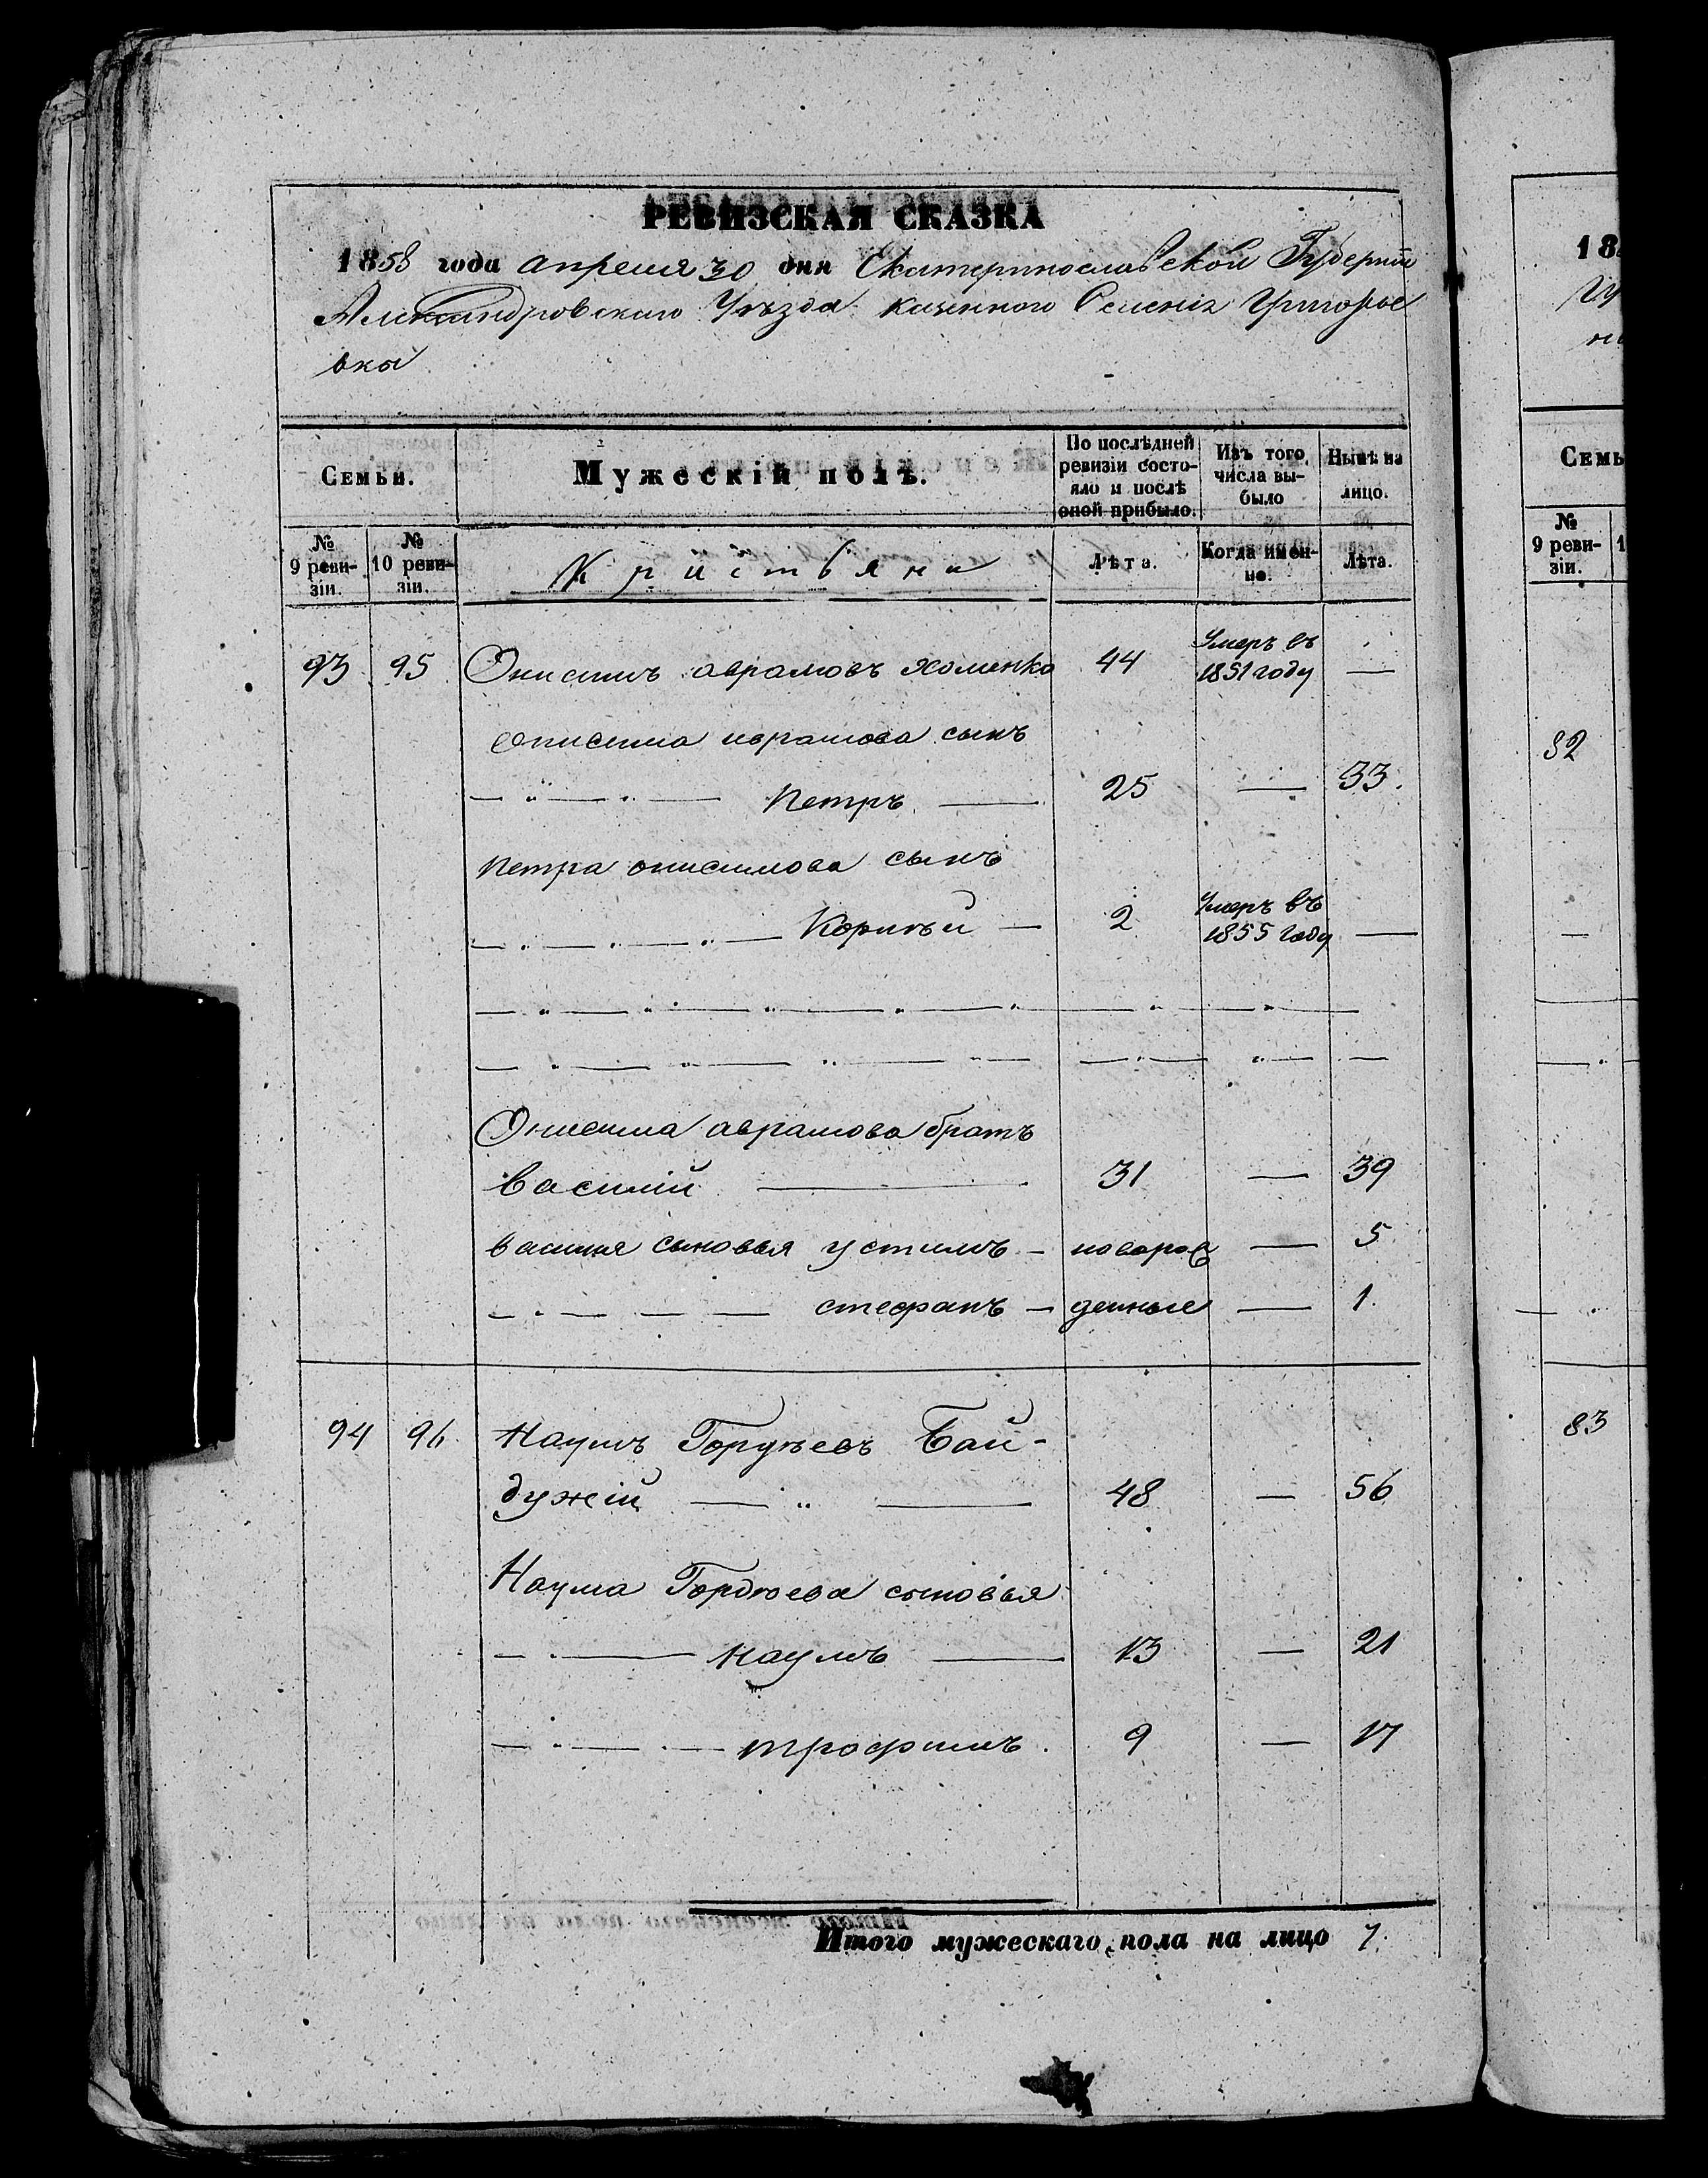 РЕВИЗСКАЯ СКАЗКА
1858 года апреля 30 дня Екатеринославской Губернии
Александровскаго Уѣзда казенного Селения Григорье
вки
Семьи.
Мужескій полъ.
По послѣдней ревизіи состояло и послѣ оной прибыло.
Изъ того числа выбыло
Нынѣ на лицо.
№ 9 ревизіи.
№ 10 ревизіи.
Кристьяни
Лѣта.
Когда именно.
Лѣта.
93 95 Онисимъ аврамовъ Хоменко 44 Умеръ въ 1851 году —
Онисима аврамова сынъ
Петръ — 25 — 33.
Петра онисимова сынъ
Корнѣй — 2 Умеръ въ 1855 году —
Онисима аврамова братъ
Василій — 31 — 39
василя сыновья устимъ — новорож — 5
стефанъ — денные — 1.
94 96 Наумъ Гордѣевъ Бай-
дужій — 48 — 56
Наума Гордѣева сыновья
Наумъ — 13 — 21
трофимъ. 9 — 17
Итого мужескаго пола на лицо 7.
18
Гу
Семь
№ 9 ревизіи.
82
83